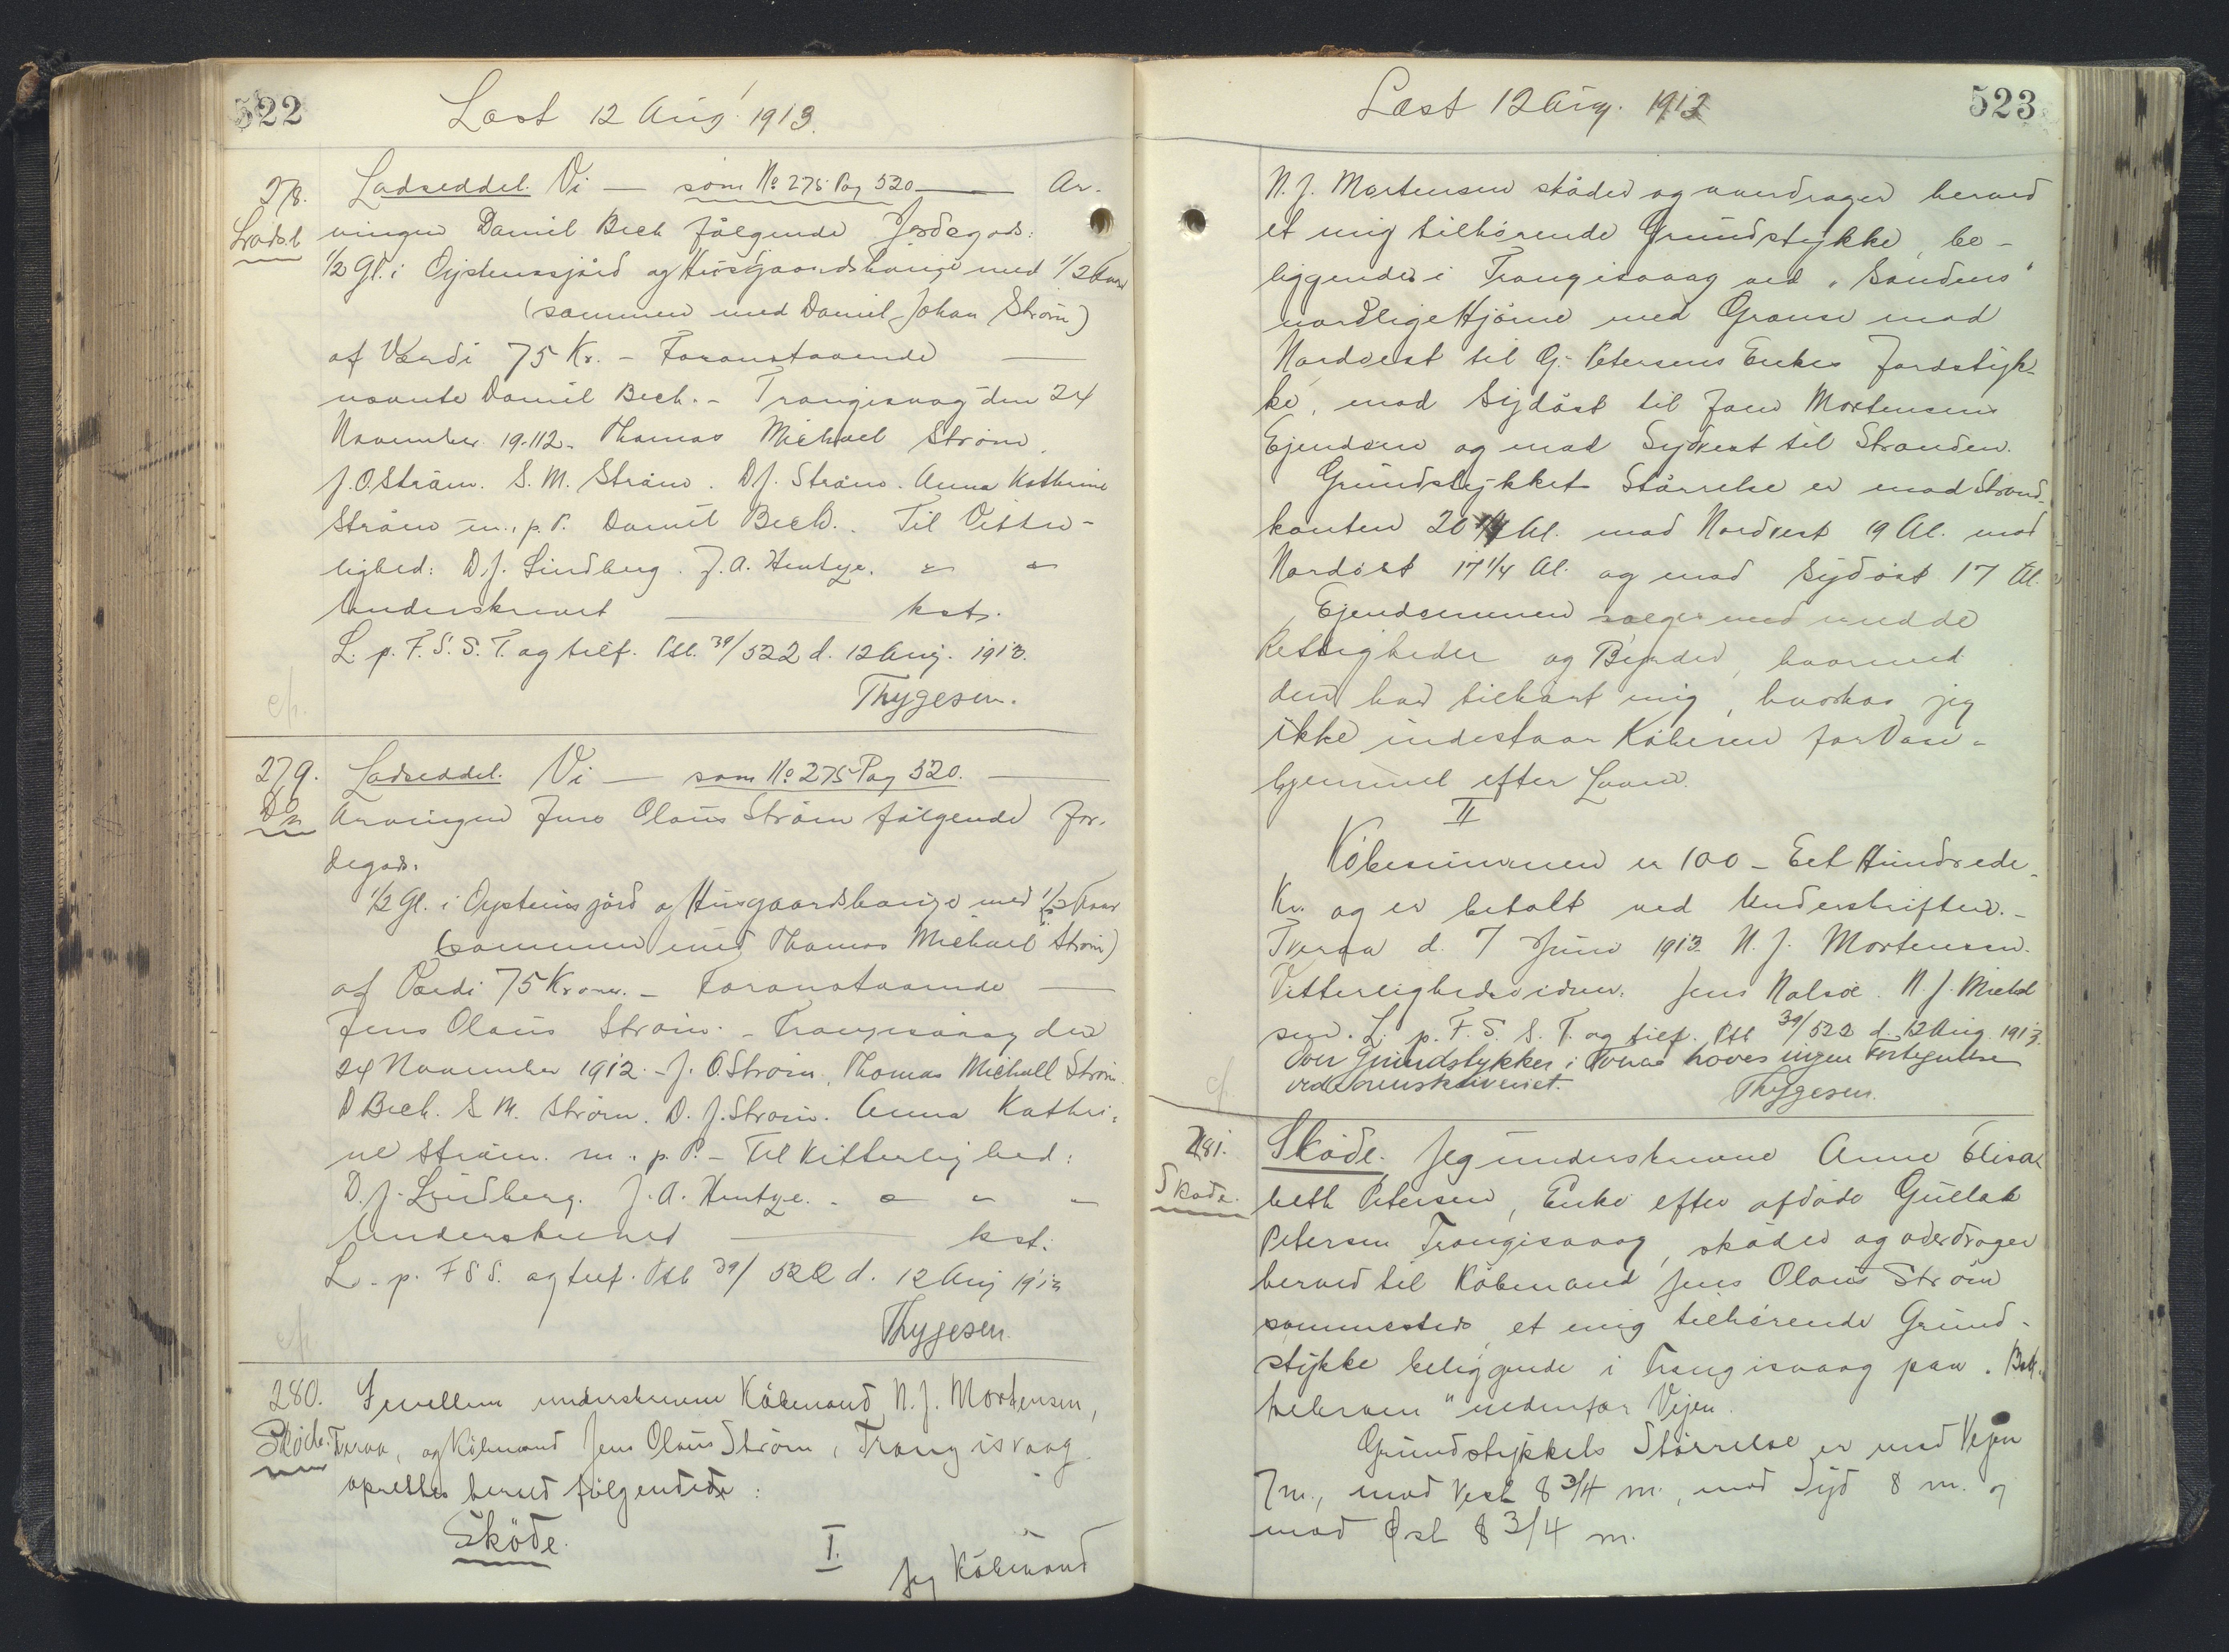 522
Læst 12 Aug. 1913.
278. Lodseddel. Vi — som No 275 Pag 520 — Ar-
Lods.l vingen Daniel Bech følgende Jordegods:
1/2 Gl. i Oysteinsjørd og Husgaardshauge med 1/2 Faar
(sammen med Daniel Johan Strøm)
af Værdi 75 Kr. - Foranstaaende —
nævnte Daniel Bech. - Trangisvaag den 24
November 1912. Thomas Michael Strøm.
J. O. Strøm. S. M. Strøm. D. J. Strøm. Anna Kathrine
Strøm m. p. P. Daniel Bech. Til Vitter-
lighed: D. J. Lindberg. J. A. Hentze. " "
Underskrevet — kst.
L. p. F. S. S. T. og tilf. Ptb. 39/522 d. 12 Aug. 1913.
Thygesen.
cf.
279. Lodseddel. Vi — som No 275 Pag 520. —
Do Arvingen Jens Olaus Strøm følgende Jor-
degods.
1/2 Gl. i Oysteinsjørd og Husgaardshauge med 1/2 Faar
(sammen med Thomas Michael Strøm)
af Værdi 75 Kroner. - Foranstaaende —
Jens Olaus Strøm. - Trangisvaag den
24 November 1912. - J. O. Strøm, Thomas Michall Strøm.
D Bech. S M. Strøm. D. J. Strøm. Anna Kathri-
ne Strøm. m. p. P. - Til Vitterlighed:
D. J. Lindberg. J. A. Hentze. - " " "
Underskrevet — kst.
L. p. F S S. og tilf. Ptb 39/522 d. 12 Aug 1913
Thygesen.
cf.
280. Imellem underskrevne Købmand N. J. Mortensen,
Skøde. Tveraa, og Købmand Jens Olaus Strøm, Trangisvaag
oprettes herved følgende:
Skøde.
I.
Jeg Købmand
523
Læst 12 Aug. 1913
N. J. Mortensen skøder og overdrager herved
et mig tilhørende Grundstykke, be-
liggende i Trangisvaag ved "Sandens"
nordlige Hjørne med Grænse mod
Nordvest til G. Petersens Enkes Jordstyk-
ke, mod Sydøst til Jens Mortensens
Ejendom og mod Sydvest til Stranden.
Grundstykket Størrelse er mod Strand-
kanten 20 Al. mod Nordvest 19 Al. mod
Nordøst 17 1/4 Al. og mod Sydøst 17 Al.
Ejendommen sælges med de
Rettigheder og Byrder, hvormed
den har tilhørt mig, hvorhos jeg
ikke indestaar Køberen for Van-
hjemmel efter Loven.
II
Købesummen er 100 - Eet Hundrede
Kr. og er betalt ved Underskriften. -
Tveraa d. 7 Juni 1913. N. J. Mortensen.
Vitterlighedsvidner. Jens Nolsøe. N. J. Michel
sen. L. p. F. S. S. T. og tilf. Ptb 39/522 d. 12 Aug. 1913.
Over Grundstykker i Tveraa haves ingen Fortegnelse
ved Sorenskriveriet.
Thygesen.
cf.
281. Skøde. Jeg underskrevne Anne Elisa-
Skøde. beth Petersen, Enke efter afdøde Gullak
Petersen Trangisvaag, skøder og overdrager
herved til Købmand Jens Olaus Strøm
sammesteds et mig tilhørende Grund-
stykke beliggende i Trangisvaag paa
nedenfor Vejen.
Grundstykkets Størrelse er mod Vejen
7 m., mod Vest 8 3/4 m., mod Syd 8 m. og
mod Øst 8 3/4 m.